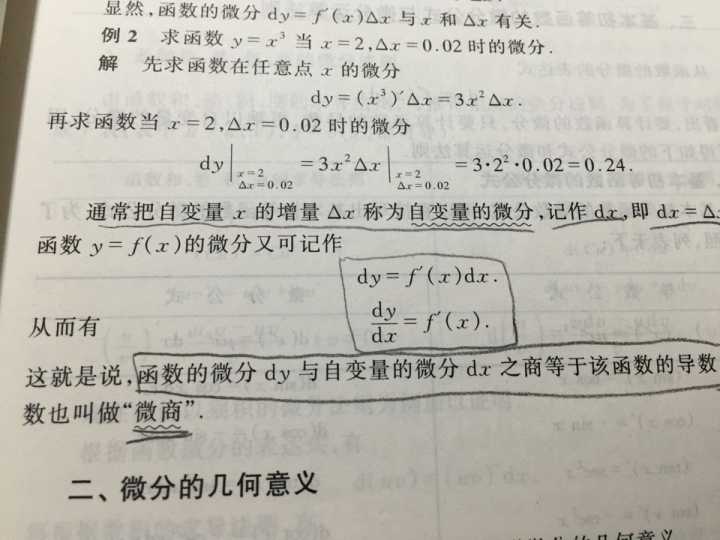 显然,函数的微分 dy=f′(x)Δx 与 x 和 Δx 有关.
例 2 求函数 y=x³ 当 x=2,Δx=0.02 时的微分.
解 先求函数在任意点 x 的微分
dy=(x³)′Δx=3x²Δx.
再求函数当 x=2,Δx=0.02 时的微分
dy|x=2 Δx=0.02 =3x²Δx|x=2 Δx=0.02 =3·2²·0.02=0.24.
通常把自变量 x 的增量 Δx 称为自变量的微分,记作 dx,即 dx=Δ
函数 y=f(x)的微分又可记作
dy=f′(x)dx.
从而有 dy/dx=f′(x).
这就是说,函数的微分 dy 与自变量的微分 dx 之商等于该函数的导数
数也叫做“微商”.
二、微分的几何意义